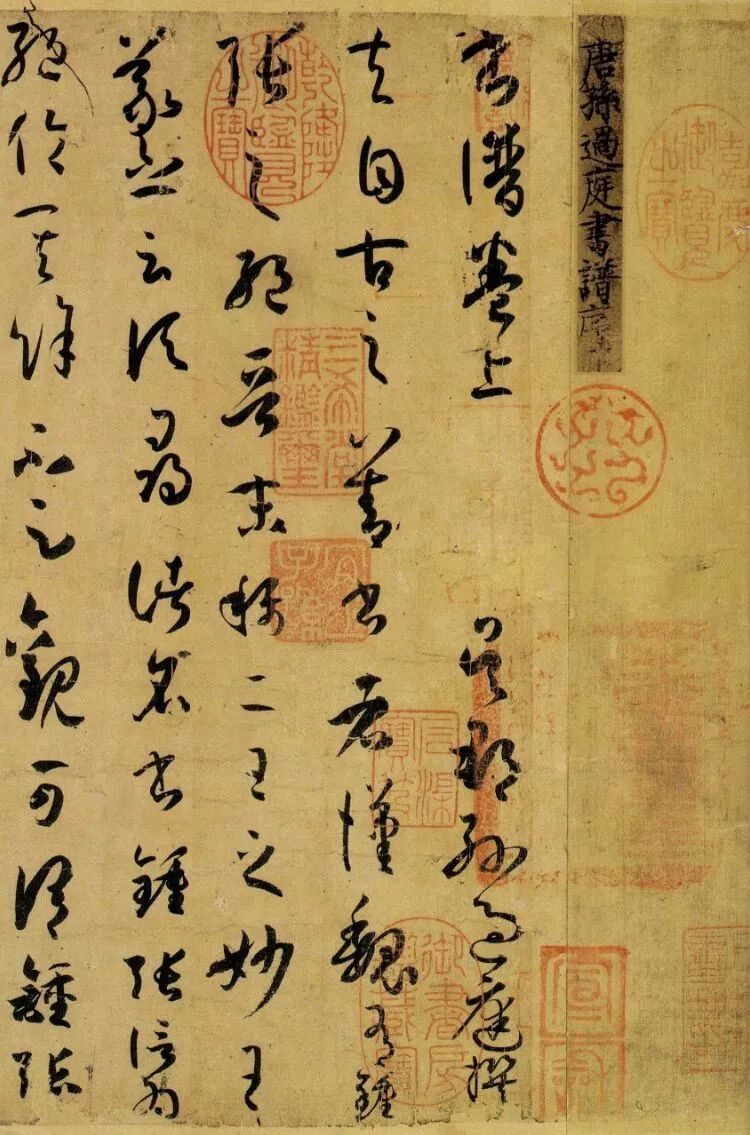 嘉慶御覽之寶
唐孫過庭書譜序
宣和
書譜卷上 吳郡孫過庭撰
夫自古之善書者漢魏有鍾
張之絕晉末稱二王之妙王
羲之云頃尋諸名書鍾張信為
絕倫其餘不足觀可謂鍾張
乾隆御覽之寶
三希堂精鑑璽
宜子孫
石渠寶笈
御書房鑑藏寶